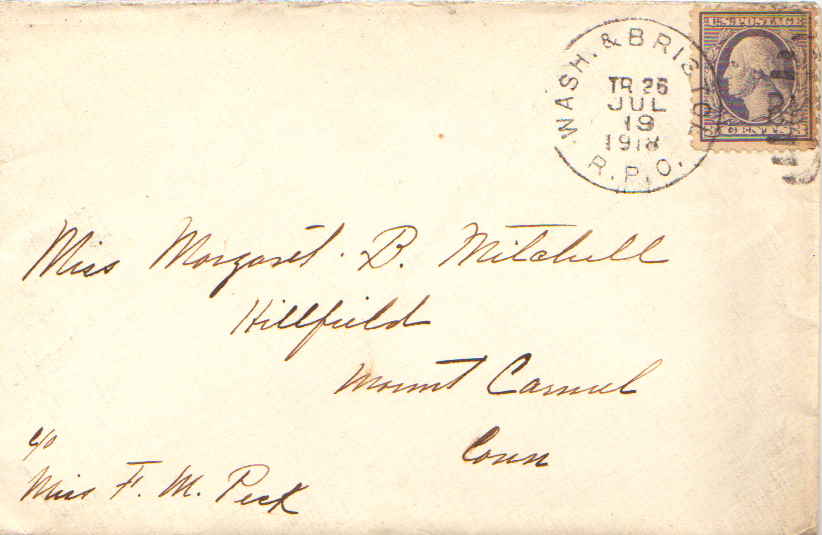 WASH. & BRISTOL
TR 26
JUL
19
1918
R.P.O.
U.S. POSTAGE
Miss Margaret. B. Mitchell
Hillfield
Mount Carmel
Conn
c/o
Miss F. M. Peck